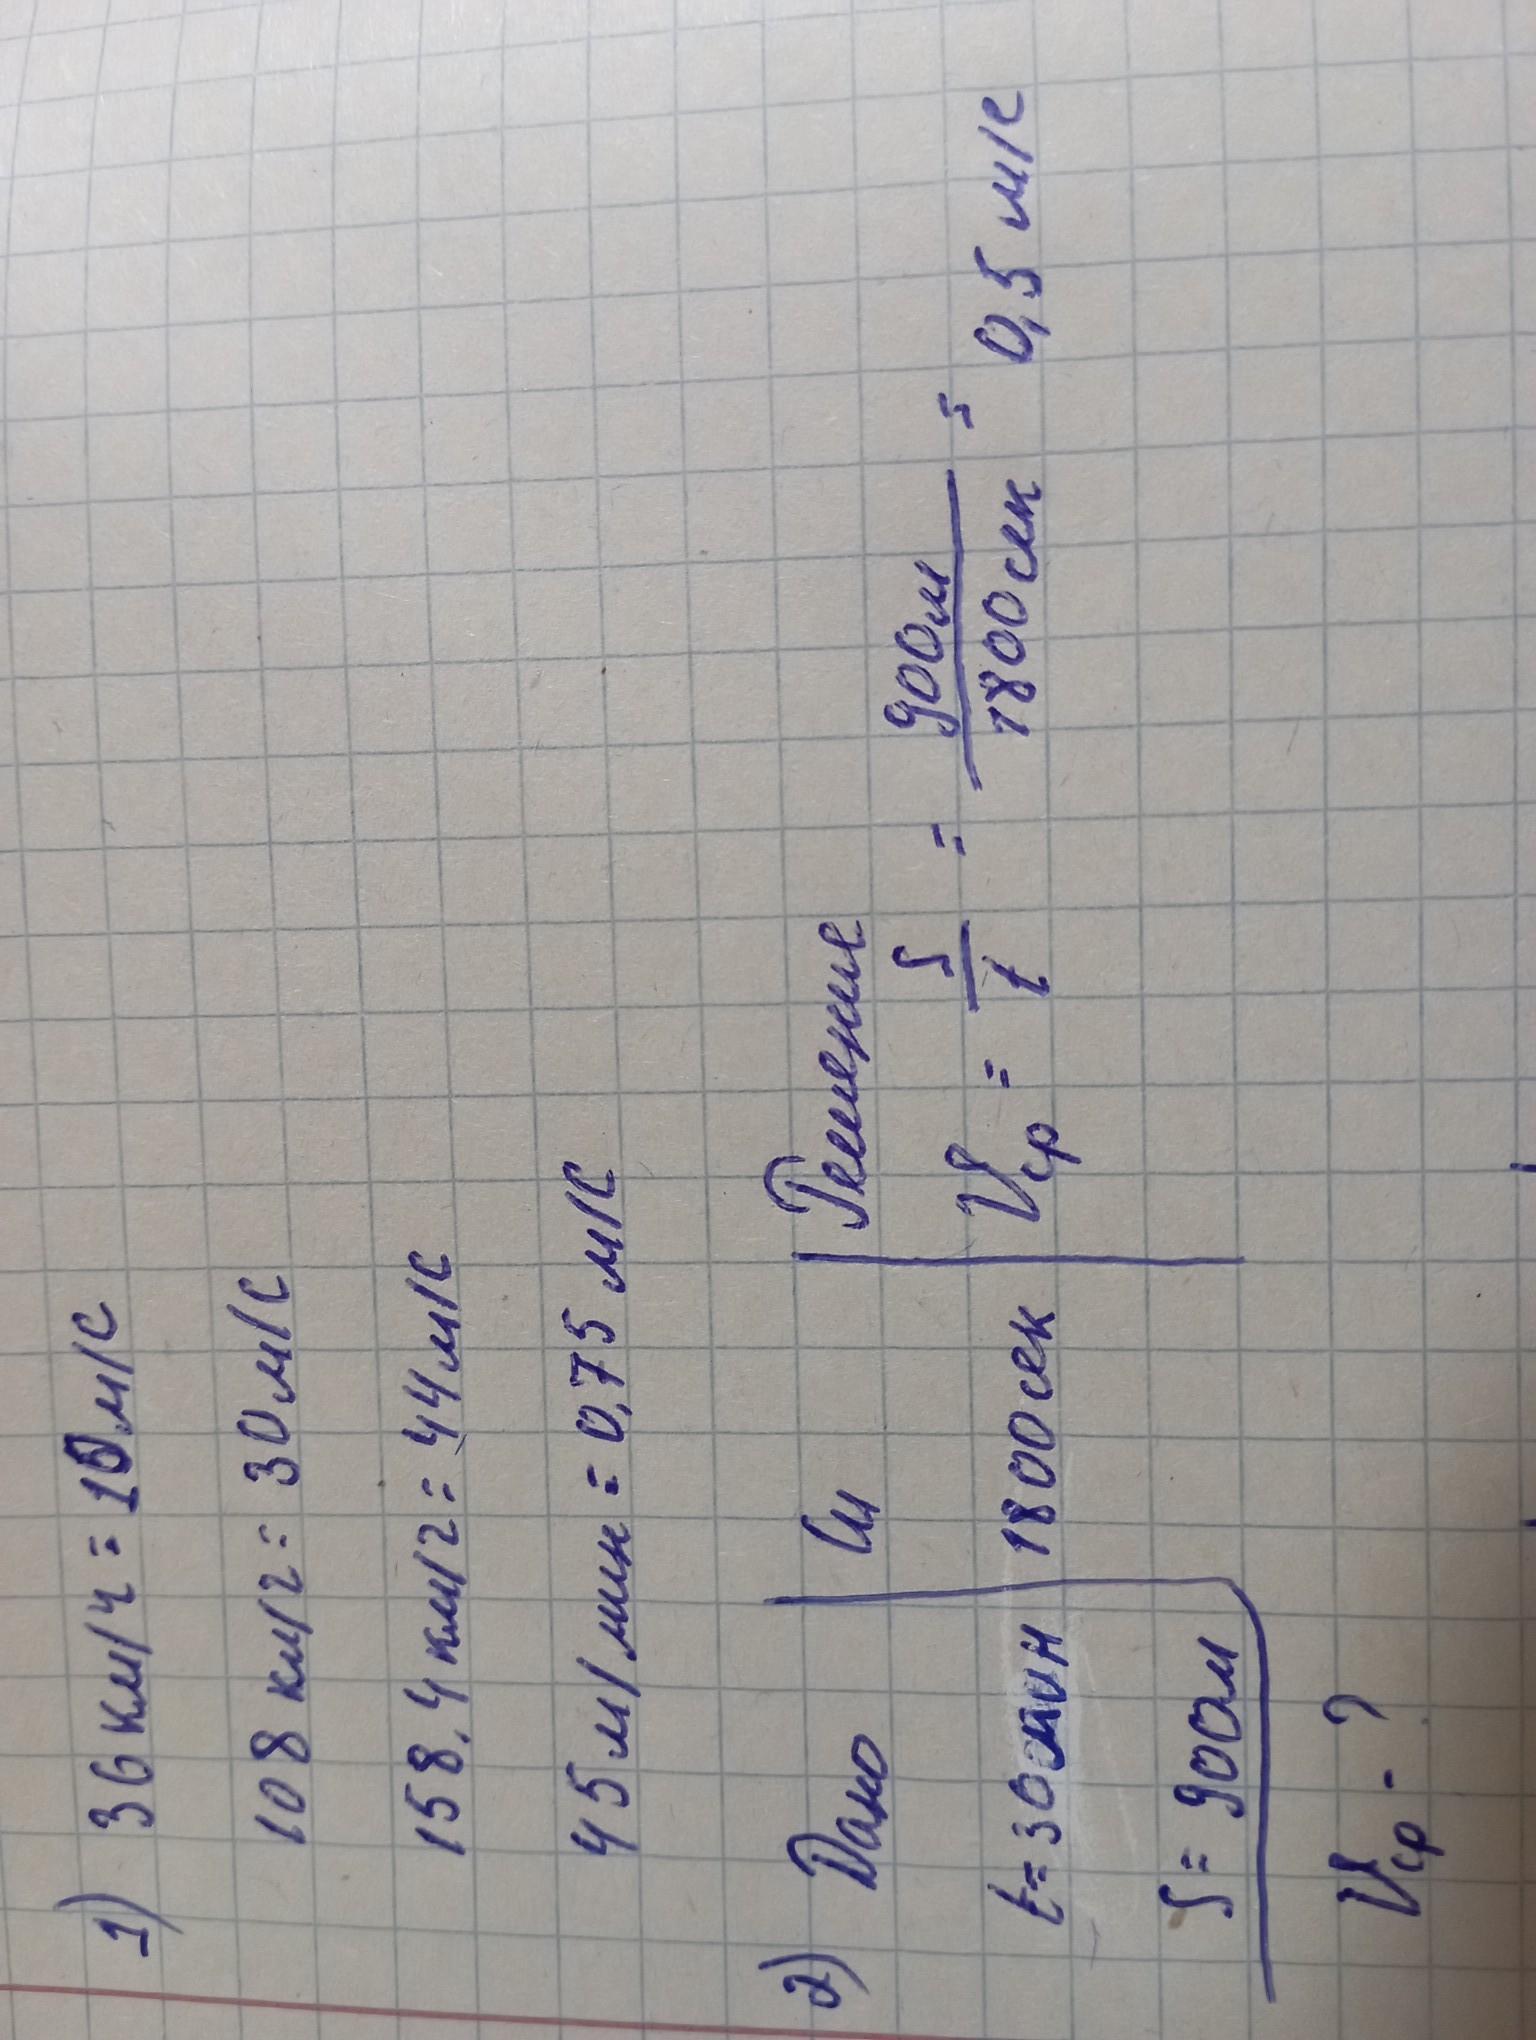 1) 36 км/ч = 10 м/с
108 км/г = 30 м/с
158,4 км/г = 44 м/с
45 м/мин = 0,75 м/с
2) Дано Си Решение
t = 30 мин 1800 сек Vср = S/t = 900м/1800сек = 0,5 м/с
S = 900м
Vср - ?